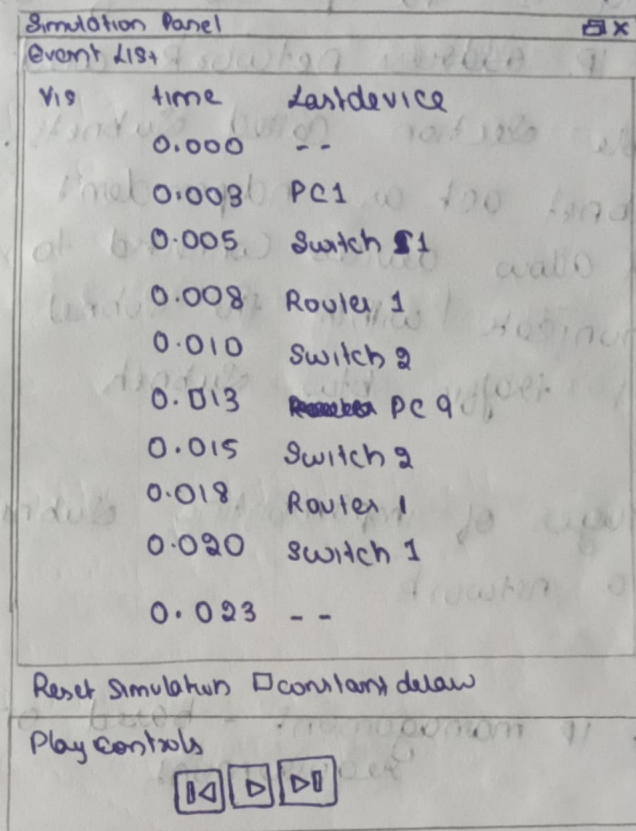 Simulation Panel
Event List
Vis time Lastdevice
0.000 --
0.003 PC1
0.005 Switch 1
0.008 Router 1
0.010 Switch 2
0.013 PC 9
0.015 Switch 2
0.018 Router 1
0.020 Switch 1
0.023 --
Reset Simulation constant delaw
Play Controls